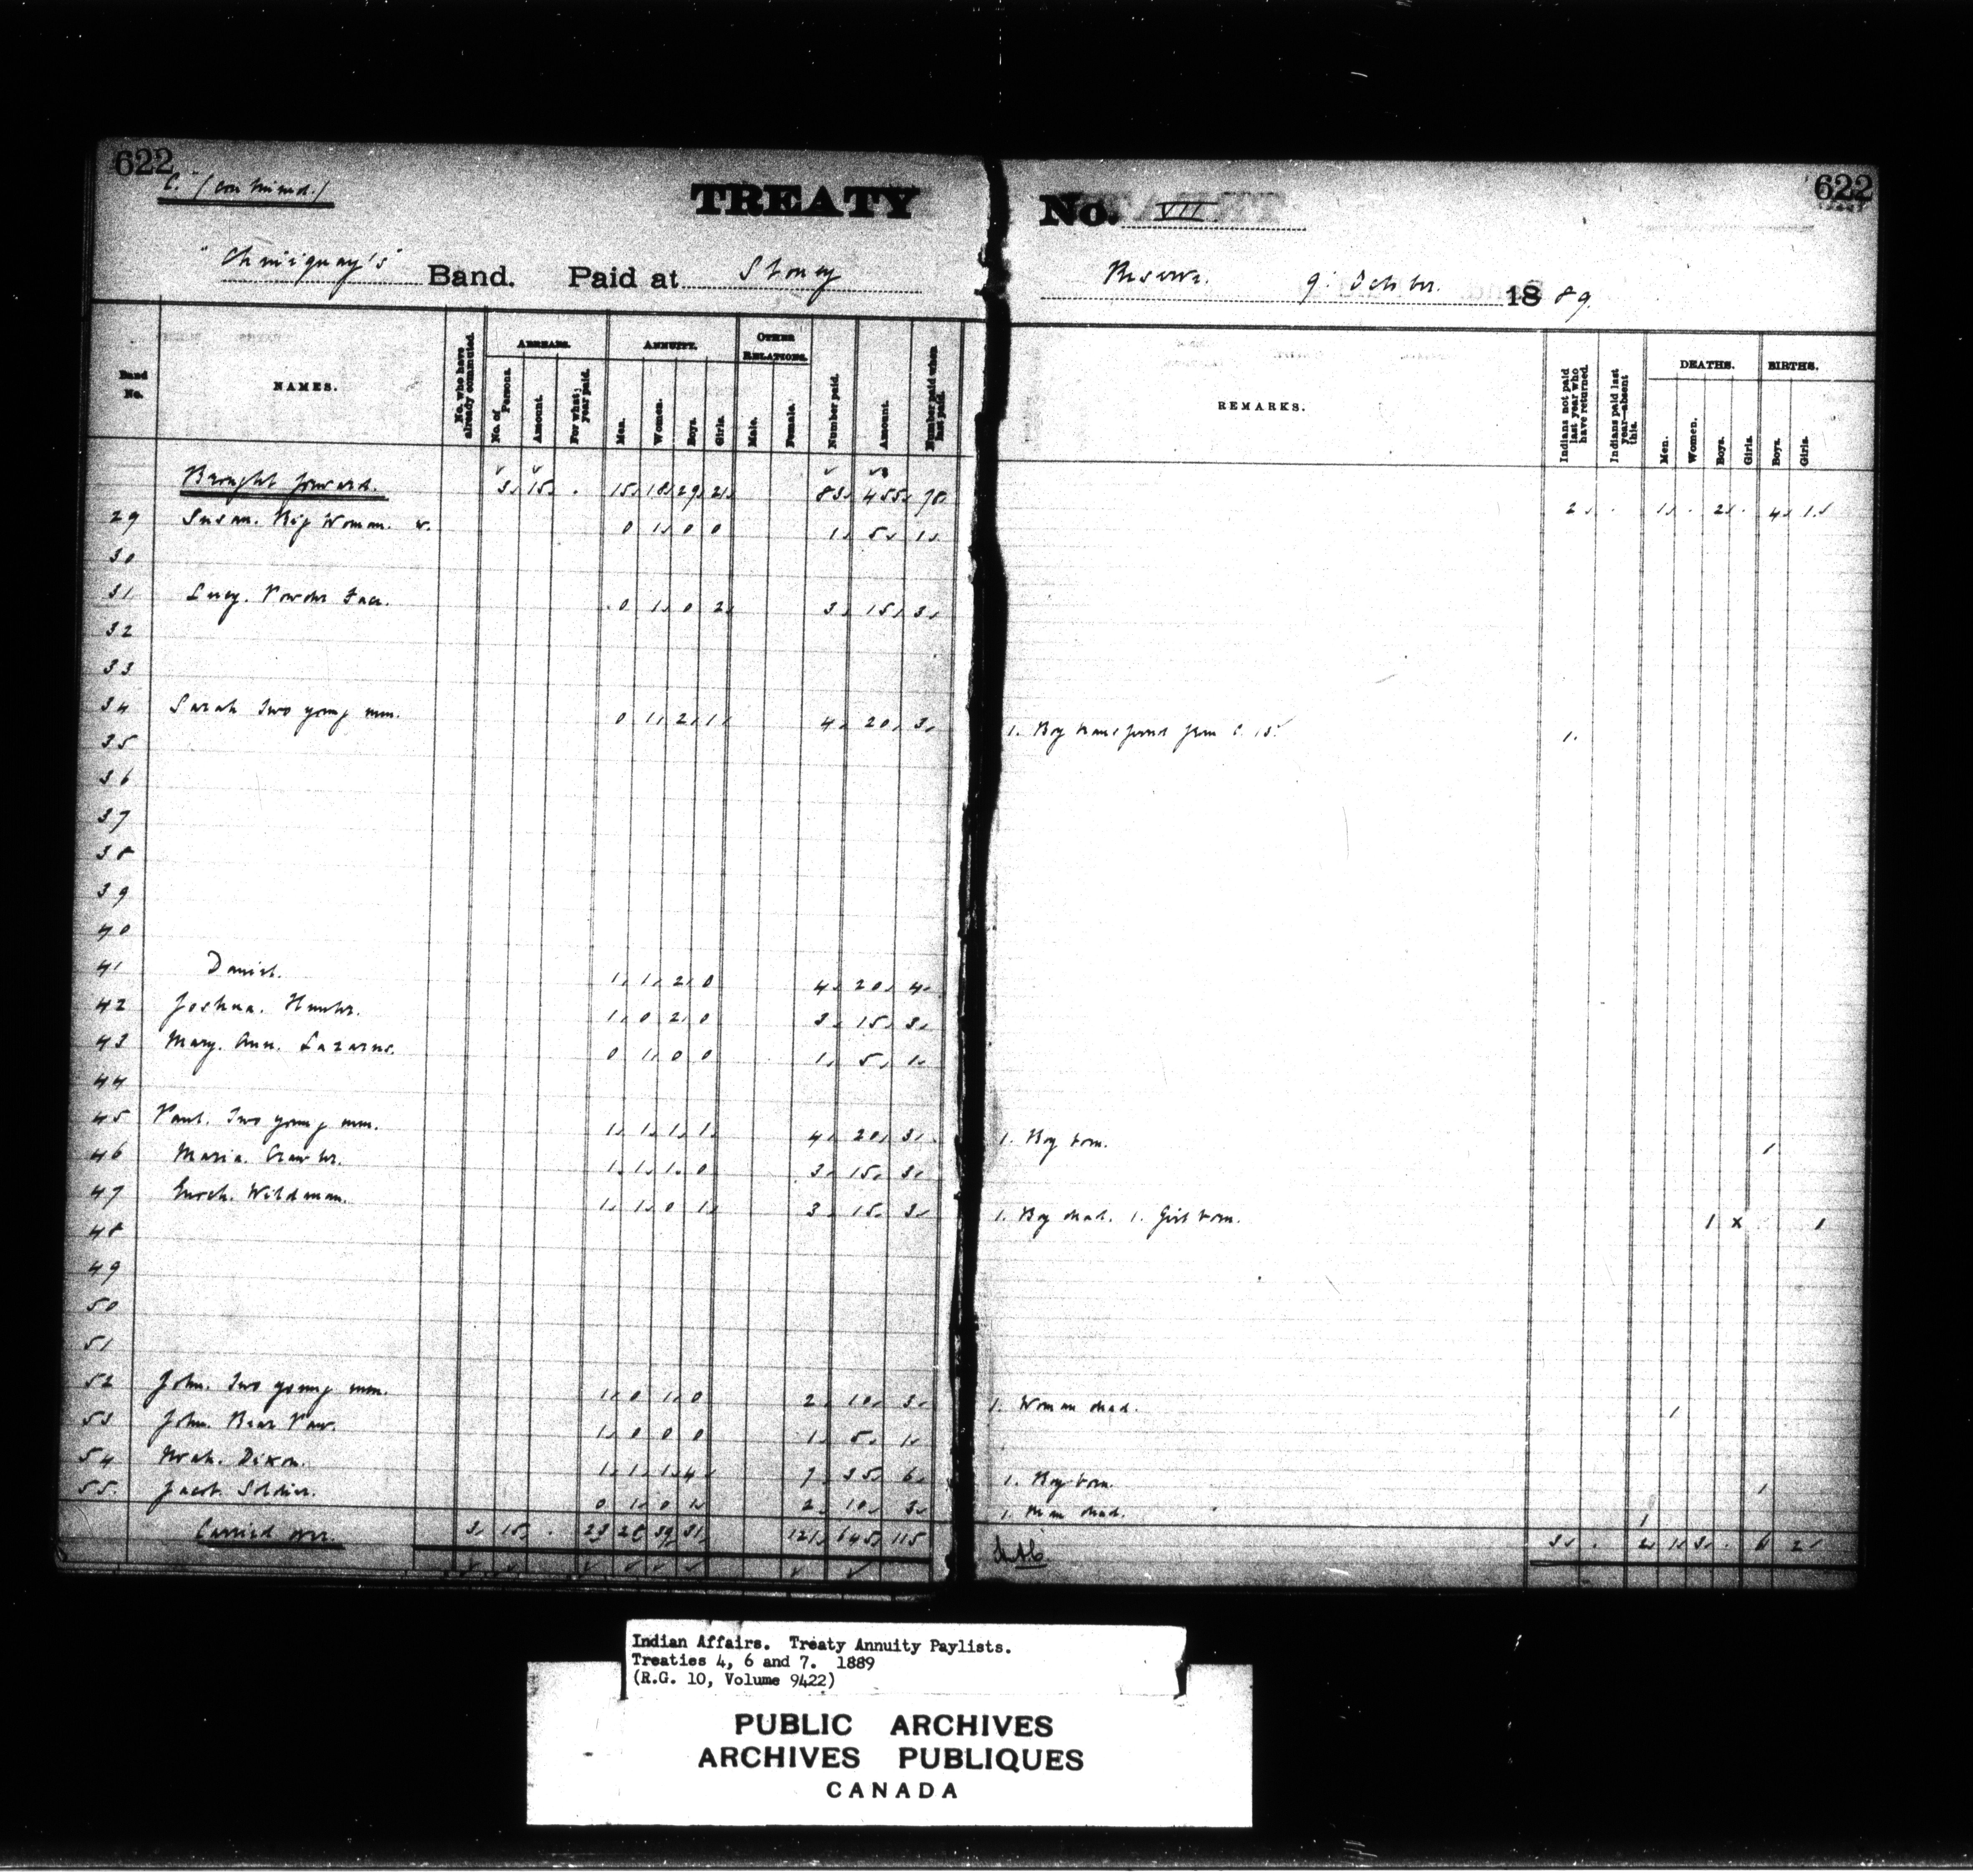 622 622
C. (continued.)
TREATY No. VII
"Chiniquay's" Band. Paid at Stoney Reserve. 9. October. 1889.
Band No. NAMES. No. who have already commuted. ARREARS. No. of Persons. Amount. For what year paid. ANNUITY. Men. Women. Boys. Girls. OTHER RELATIONS. Male. Female. Number paid. Amount. Number paid when last paid. REMARKS. Indians not paid last year who have returned. Indians paid last year—absent this. DEATHS. Men. Women. Boys. Girls. BIRTHS. Boys. Girls.
Brought forward. 3 15 . 15 18 29 21 83 455 78 2 . 1 . 2 . 4 1
29 Susan. Big Woman. w. 0 1 0 0 1 5 1
30
31 Lucy. Powder Face. 0 1 0 2 3 15 3
32
33
34 Sarah Two young men. 0 1 2 1 4 20 3 1. Boy transferred from C. 15. 1.
35
36
37
38
39
40
41 Daniel. 1 1 2 0 4 20 4
42 Joshua. Hunter. 1 0 2 0 3 15 3
43 Mary. Ann. Lazarus. 0 1 0 0 1 5 1
44
45 Paul. Two young men. 1 1 1 1 4 20 3 1. Boy born. 1
46 Maria. Crawler. 1 1 1 0 3 15 3
47 Enoch. Wildman. 1 1 0 1 3 15 3 1. Boy dead. 1. Girl born. 1 x 1
48
49
50
51
52 John. Two young men. 1 0 1 0 2 10 3 1. Woman dead. 1
53 John. Bear Paw. 1 0 0 0 1 5 1
54 Noah. Dixon. 1 1 1 4 7 35 6 1. Boy born. 1
55 Jacob. Soldier. 0 1 0 1 2 10 3 1. Man dead. 1
Carried over. 3 15 . 23 28 39 31 121 645 115 3 . 2 1 3 . 6 2
Indian Affairs. Treaty Annuity Paylists.
Treaties 4, 6 and 7. 1889
(R.G. 10, Volume 9422)
PUBLIC ARCHIVES
ARCHIVES PUBLIQUES
CANADA